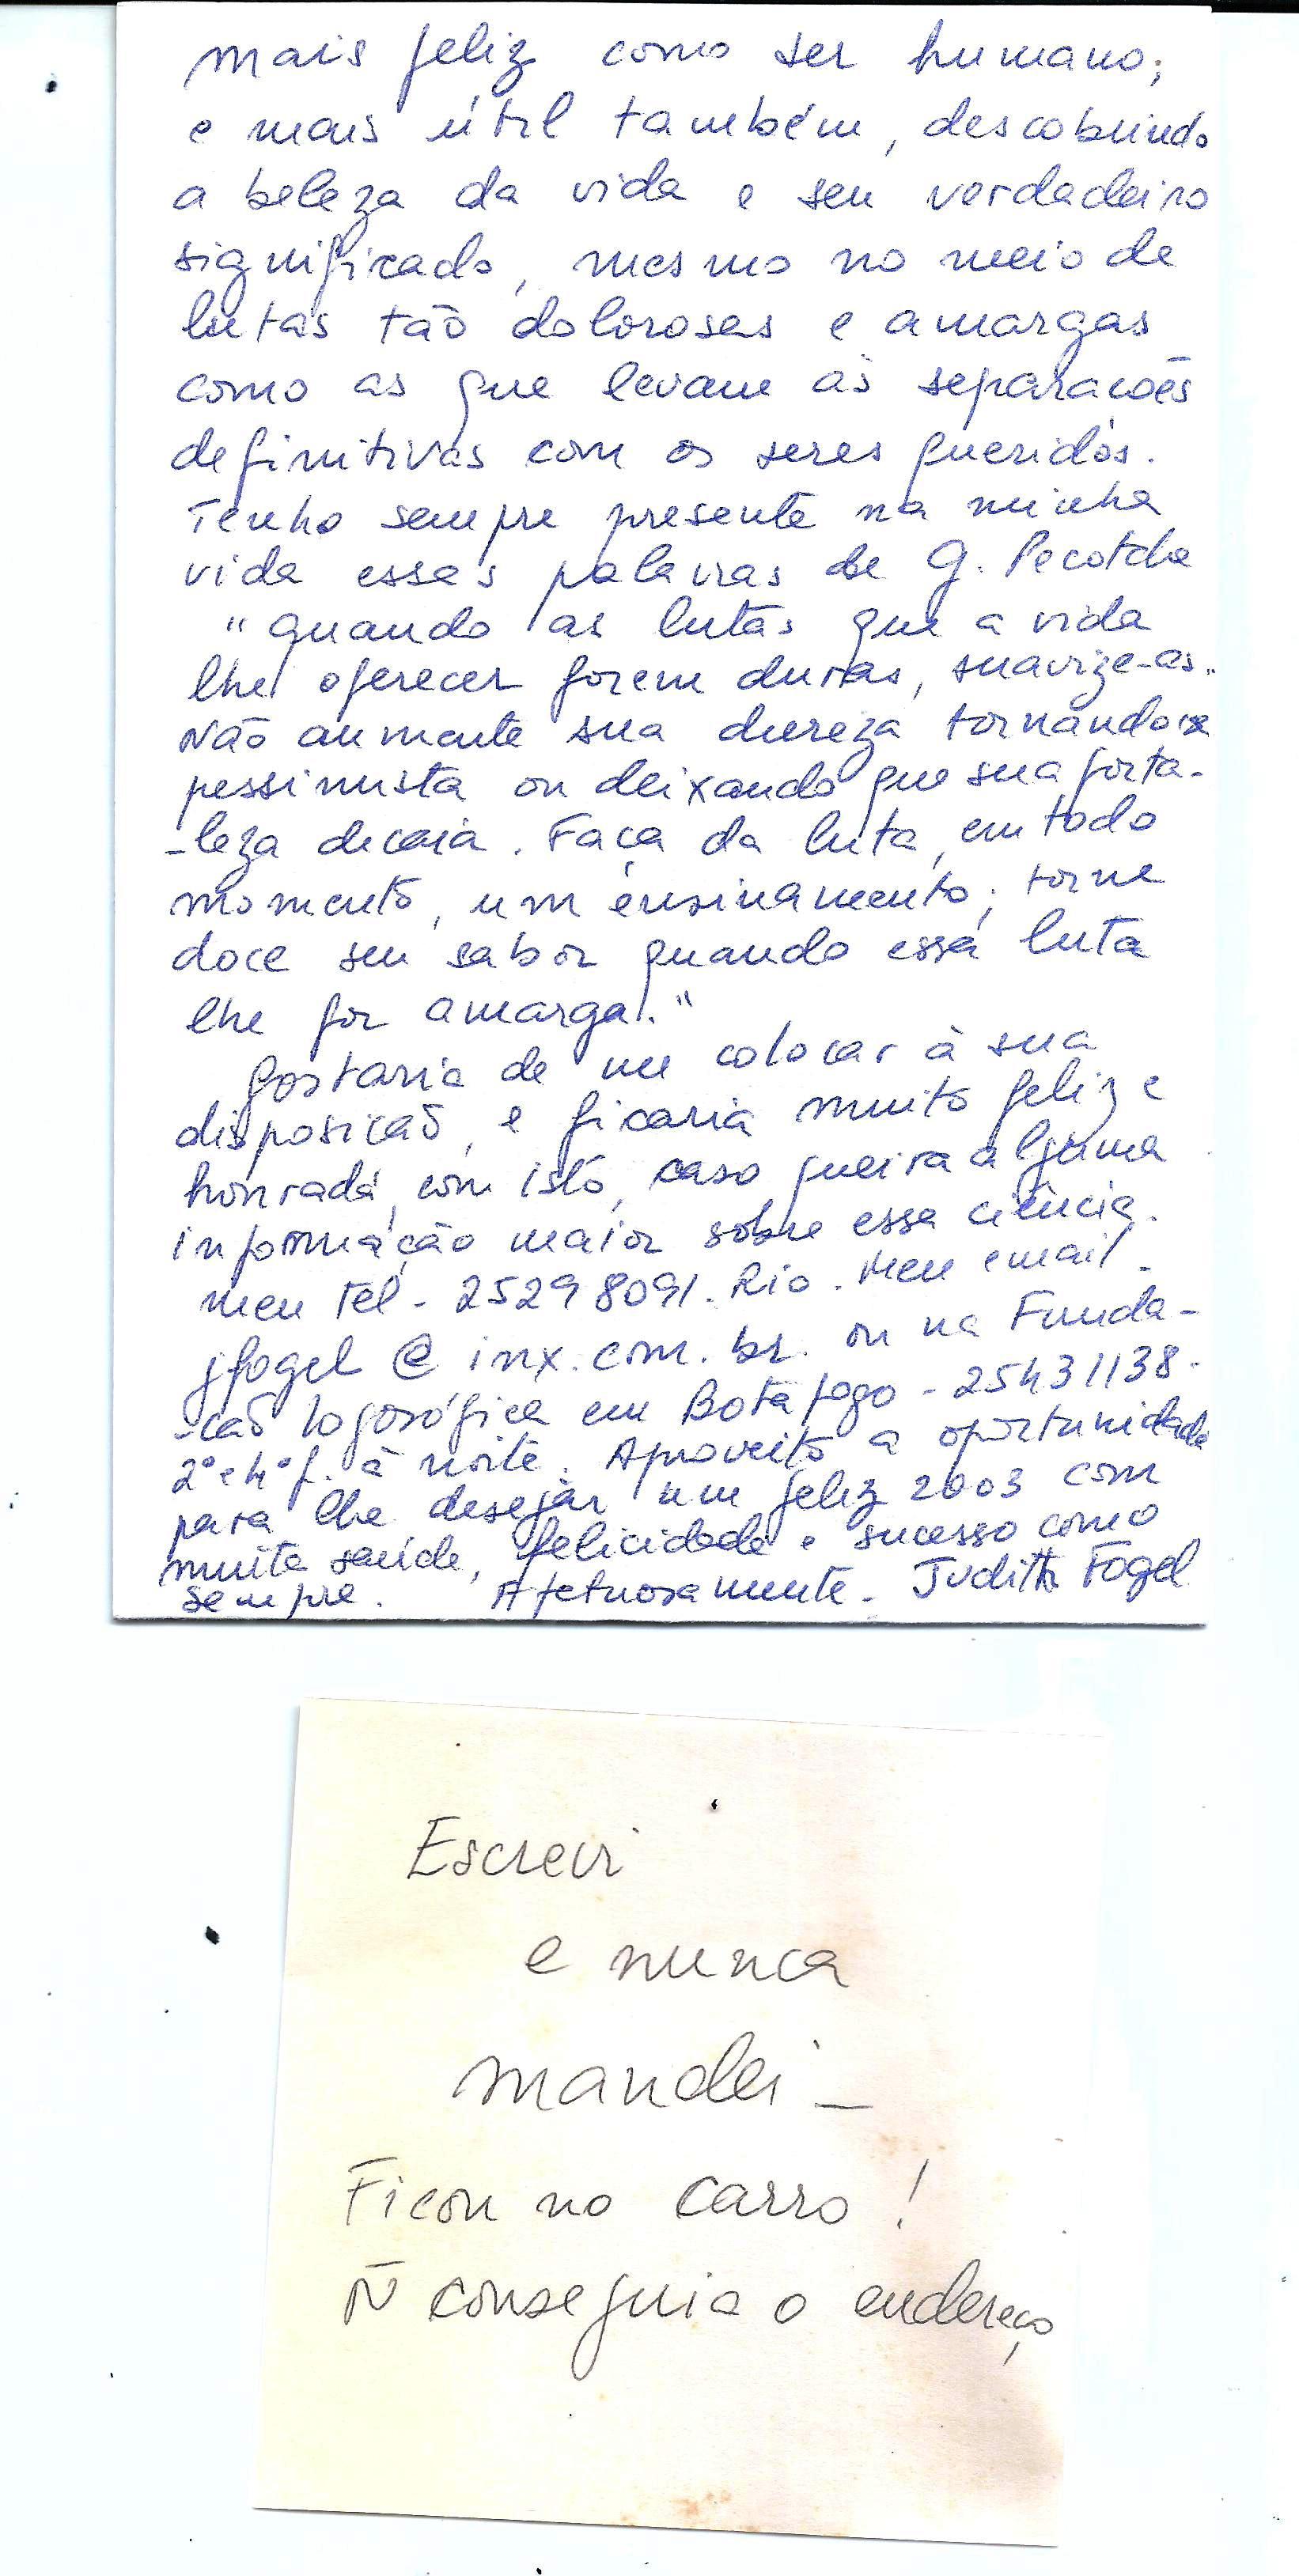 mais feliz como ser humano;
e mais útil também, descobrindo
a beleza da vida e seu verdadeiro
significado, mesmo no meio de
lutas tão dolorosas e amargas
como as que levam às separacões
definitivas com os seres queridos.
Tenho sempre presente na minha
vida essas palavras de G. Pecotche
"Quando as lutas que a vida
lhe oferecer forem duras, suavize-as.
Não aumente sua dureza tornando-se
pessimista ou deixando que sua forta-
-leza decaia. Faça da luta, em todo
momento, um ensinamento; torne
doce seu sabor quando essa luta
lhe for amarga."
Gostaria de me colocar à sua
disposicão, e ficaria muito feliz e
honrada, com isto, caso queira alguma
informação maior sobre essa ciência.
meu Tel - 25298091. Rio. Meu email -
jfogel @ inx.com.br. ou na Funda-
-cão logosófica em Botafogo - 25431138.
2ª e 4ª f. à noite. Aproveito a oportunidade
para lhe desejar um feliz 2003 com
muita saúde, felicidade e sucesso como
sempre. Afetuosamente - Judith Fogel
Escrevi
e nunca
mandei -
Ficou no carro!
Ñ conseguia o endereço